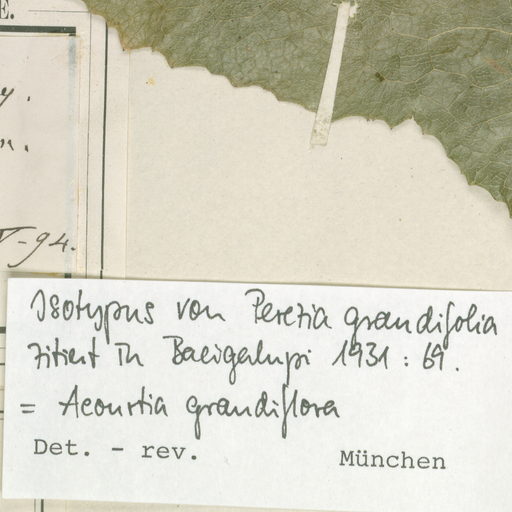 E.
y.
n.
-94.
Isotypus von Perezia grandifolia
zitiert in Bacigalupi 1931 : 69.
= Acourtia grandiflora
Det. - rev. München